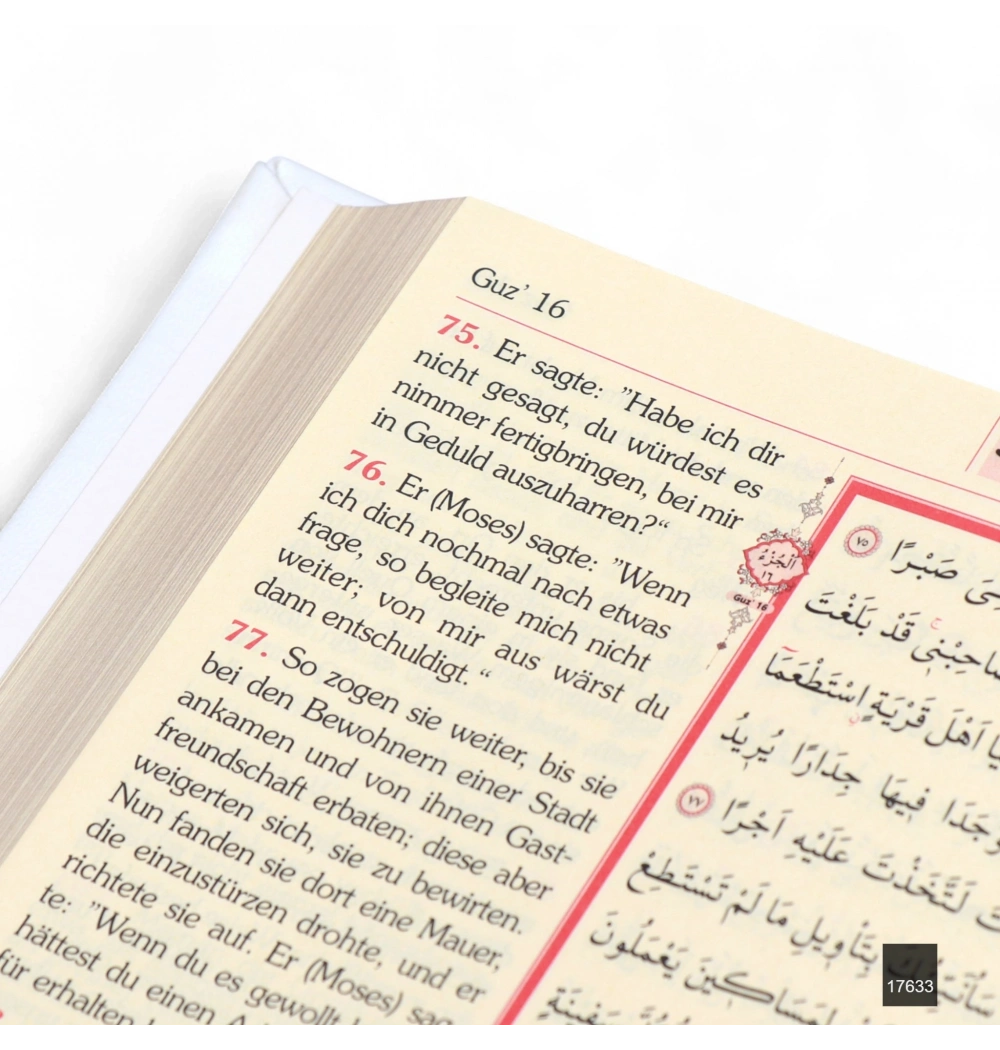 Guz' 16
75. Er sagte: "Habe ich dir
nicht gesagt, du würdest es
nimmer fertigbringen, bei mir
in Geduld auszuharren?“
76. Er (Moses) sagte: "Wenn
ich dich nochmal nach etwas
frage, so begleite mich nicht
weiter; von mir aus wärst du
dann entschuldigt. “
77. So zogen sie weiter, bis sie
bei den Bewohnern einer Stadt
ankamen und von ihnen Gast-
freundschaft erbaten; diese aber
weigerten sich, sie zu bewirten.
Nun fanden sie dort eine Mauer,
die einzustürzen drohte, und er
richtete sie auf. Er (Moses) sag
te: "Wenn du es gewollt
hättest du einen
für erhalten
الْجُزْءُ
١٦
Guz' 16
صَبْرًا ٧٥
قَدْ بَلَغْتَ
اَهْلَ قَرْيَةٍ اسْتَطْعَمَا
فِيهَا جِدَارًا يُرِيدُ
لَتَّخَذْتَ عَلَيْهِ اَجْرًا ٧٧
بِتَأْوِيلِ مَا لَمْ تَسْتَطِعْ
يَعْمَلُونَ
17633